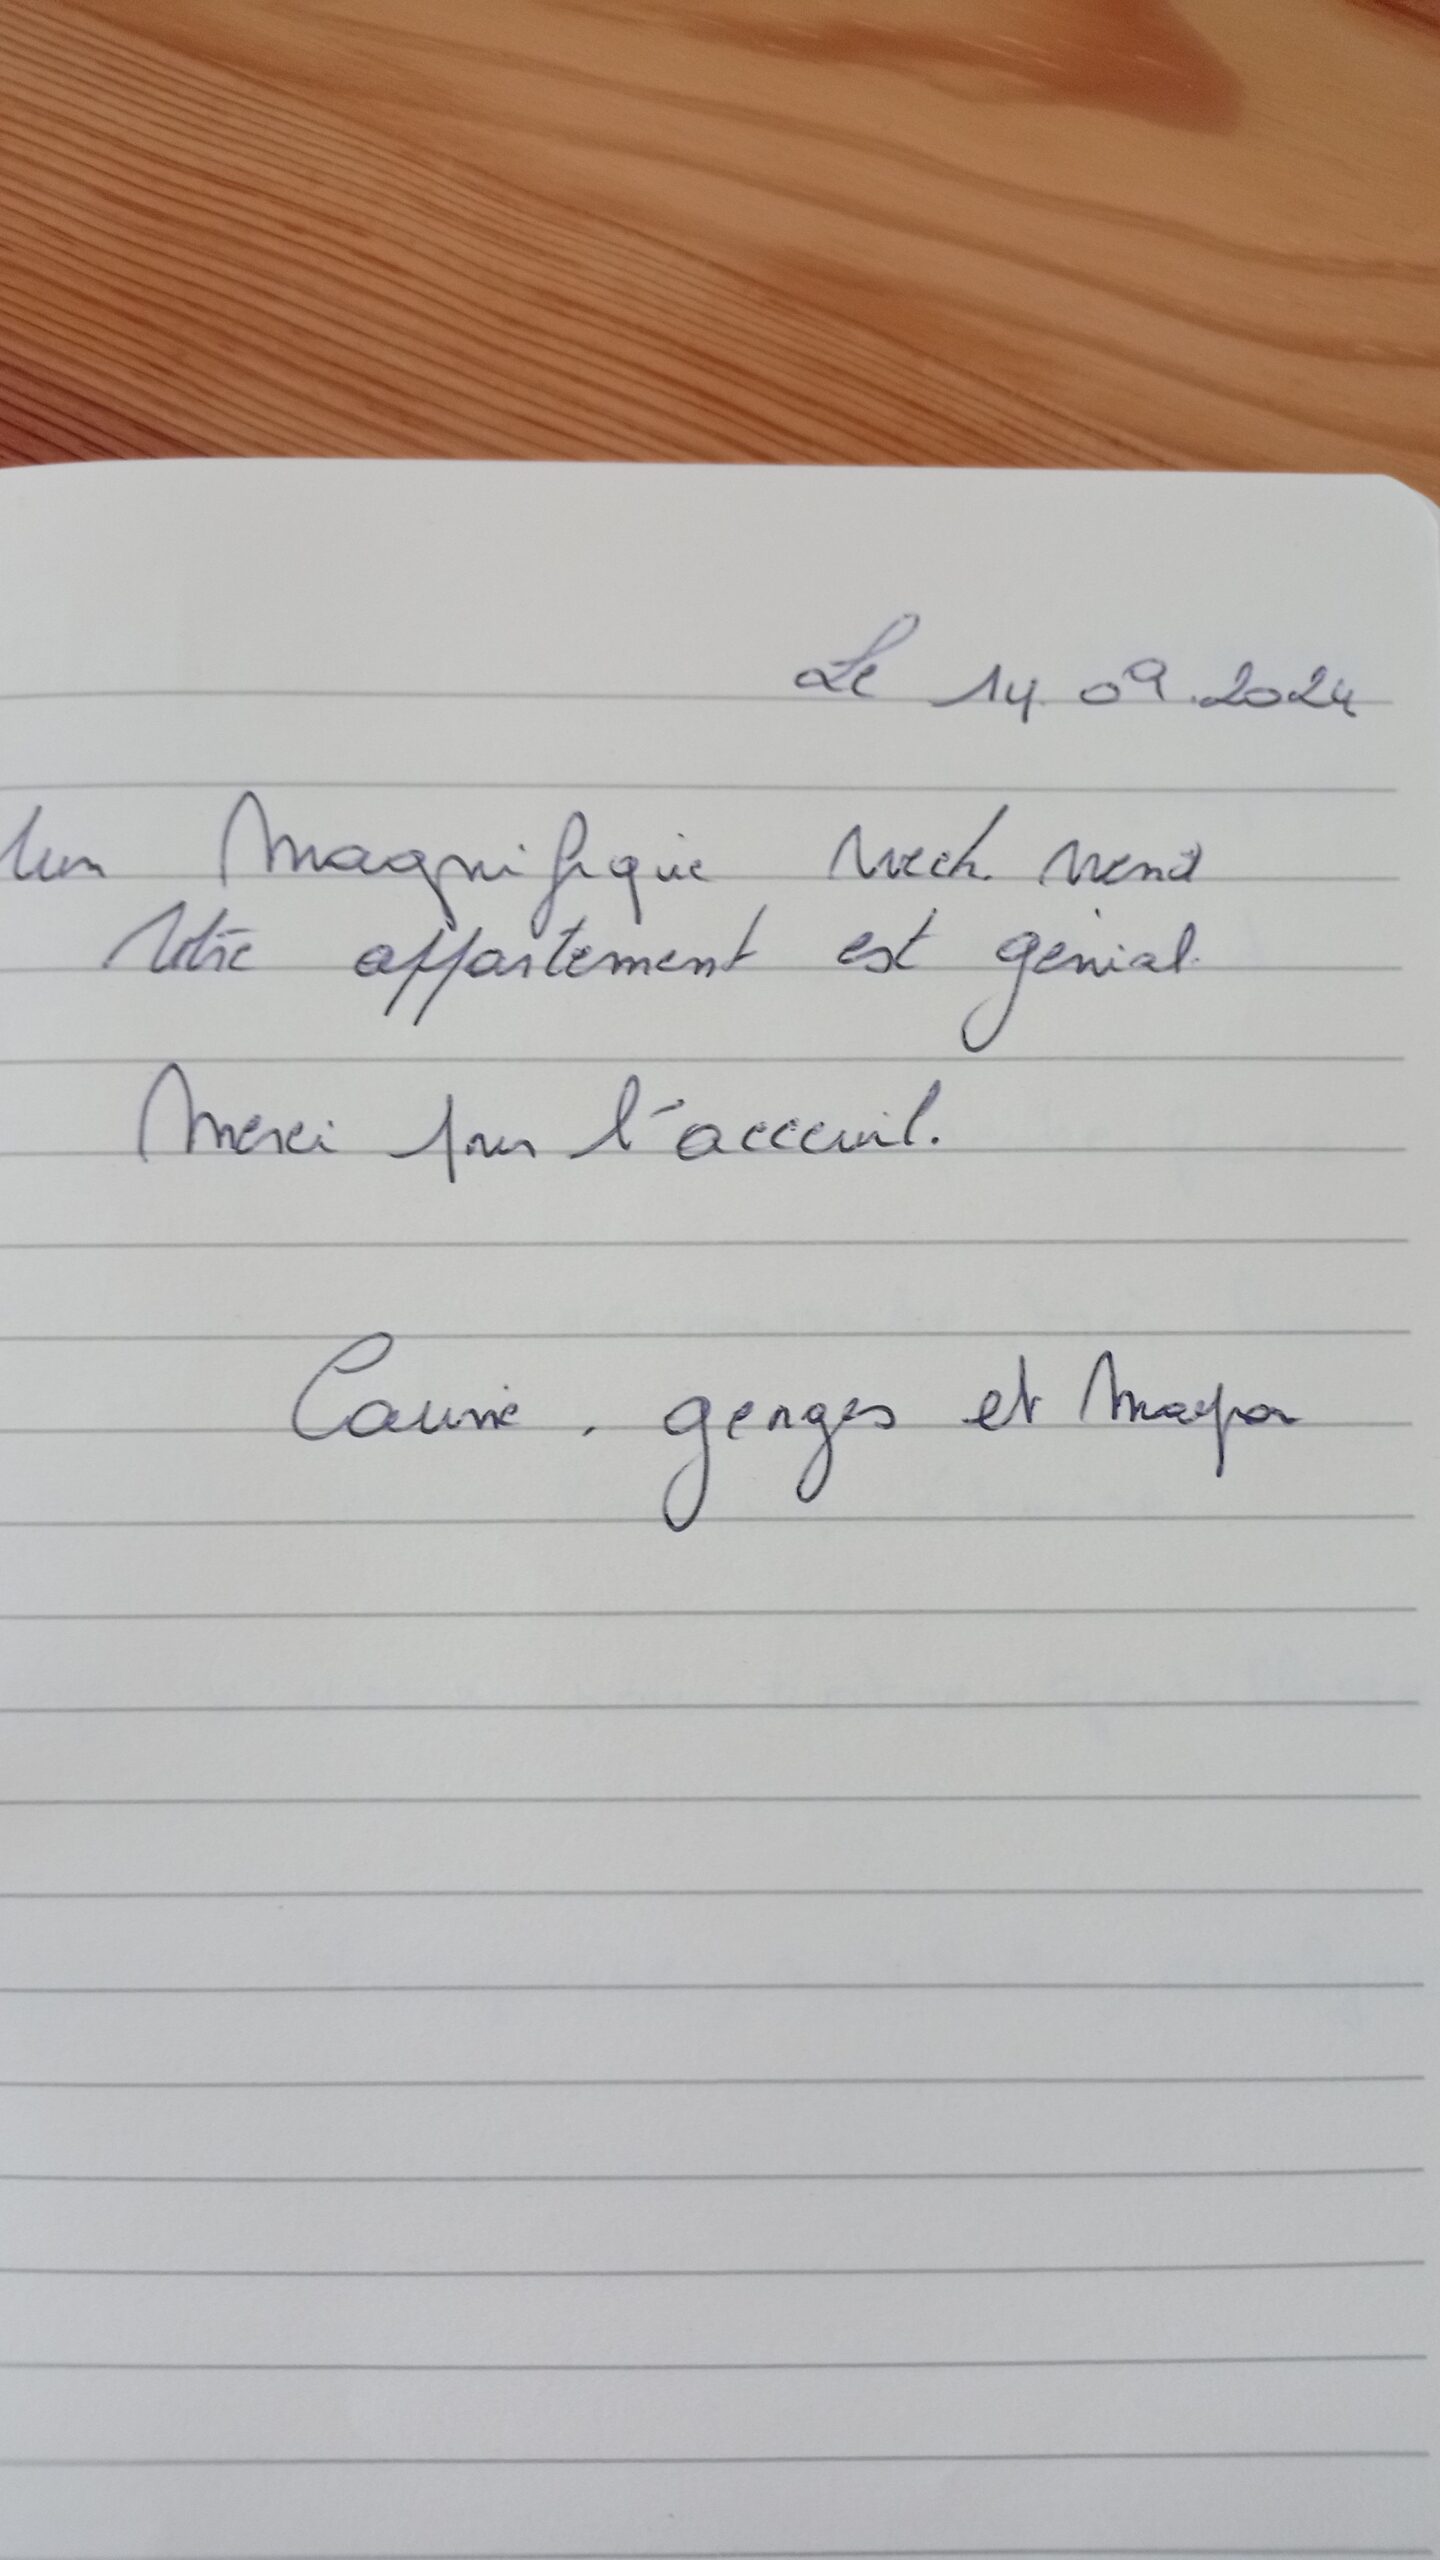 Le 14.09.2024
Un Magnifique week wend
Votre appartement est génial.
Merci pour l'acceuil.
georges et Maya